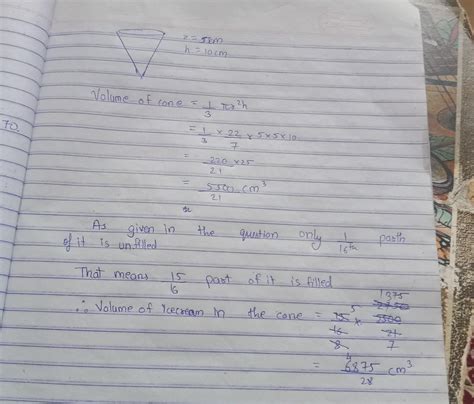 r = 5cm
h = 10cm
Volume of cone = 1/3 πr²h
= 1/3 × 22/7 × 5×5×10
= 220×25/21
= 5500/21 cm³
70.
As given in the question only 1/16th parth
of it is unfilled
That means 15/16 part of it is filled
∴ Volume of Icecream in the cone = 15/16 × 5500/21
5 1375
2750
8 7
4
= 6875/28 cm³